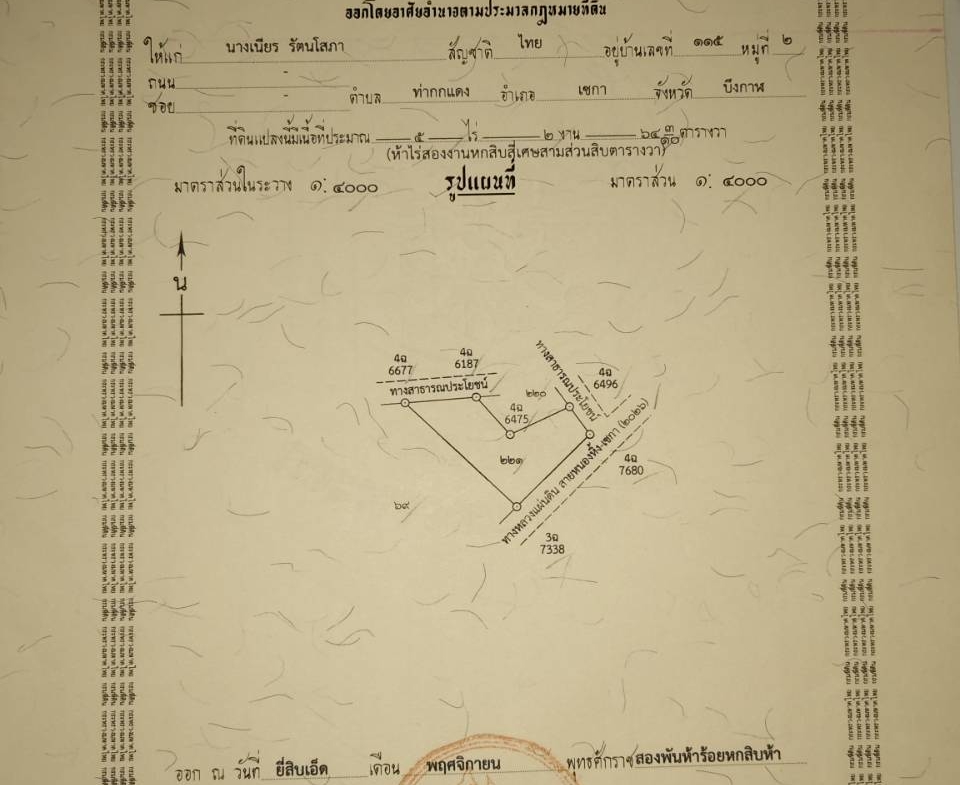 ออกโดยอาศัยอำนาจตามประมวลกฎหมายที่ดิน
ให้แก่ นางเนียร รัตนโสภา สัญชาติ ไทย อยู่บ้านเลขที่ ๑๑๕ หมู่ที่ ๒
ถนน -
ซอย - ตำบล ท่ากกแดง อำเภอ เซกา จังหวัด บึงกาฬ
ที่ดินแปลงนี้มีเนื้อที่ประมาณ ๕ ไร่ ๒ งาน ๖๔ ๓/๑๐ ตารางวา
(ห้าไร่สองงานหกสิบสี่เศษสามส่วนสิบตารางวา)
มาตราส่วนในระวาง ๑: ๔๐๐๐ รูปแผนที่ มาตราส่วน ๑: ๔๐๐๐
น
4ฉ
6677
4ฉ
6187
ทางสาธารณประโยชน์
ทางสาธารณประโยชน์
4ฉ
6496
๒๒๐
4ฉ
6475
๒๒๑
ทางหลวงแผ่นดิน สายหนองหิ้ง-เซกา (๒๐๒๖)
4ฉ
7680
๖๙
3ฉ
7338
ออก ณ วันที่ ยี่สิบเอ็ด เดือน พฤศจิกายน พุทธศักราช สองพันห้าร้อยหกสิบห้า